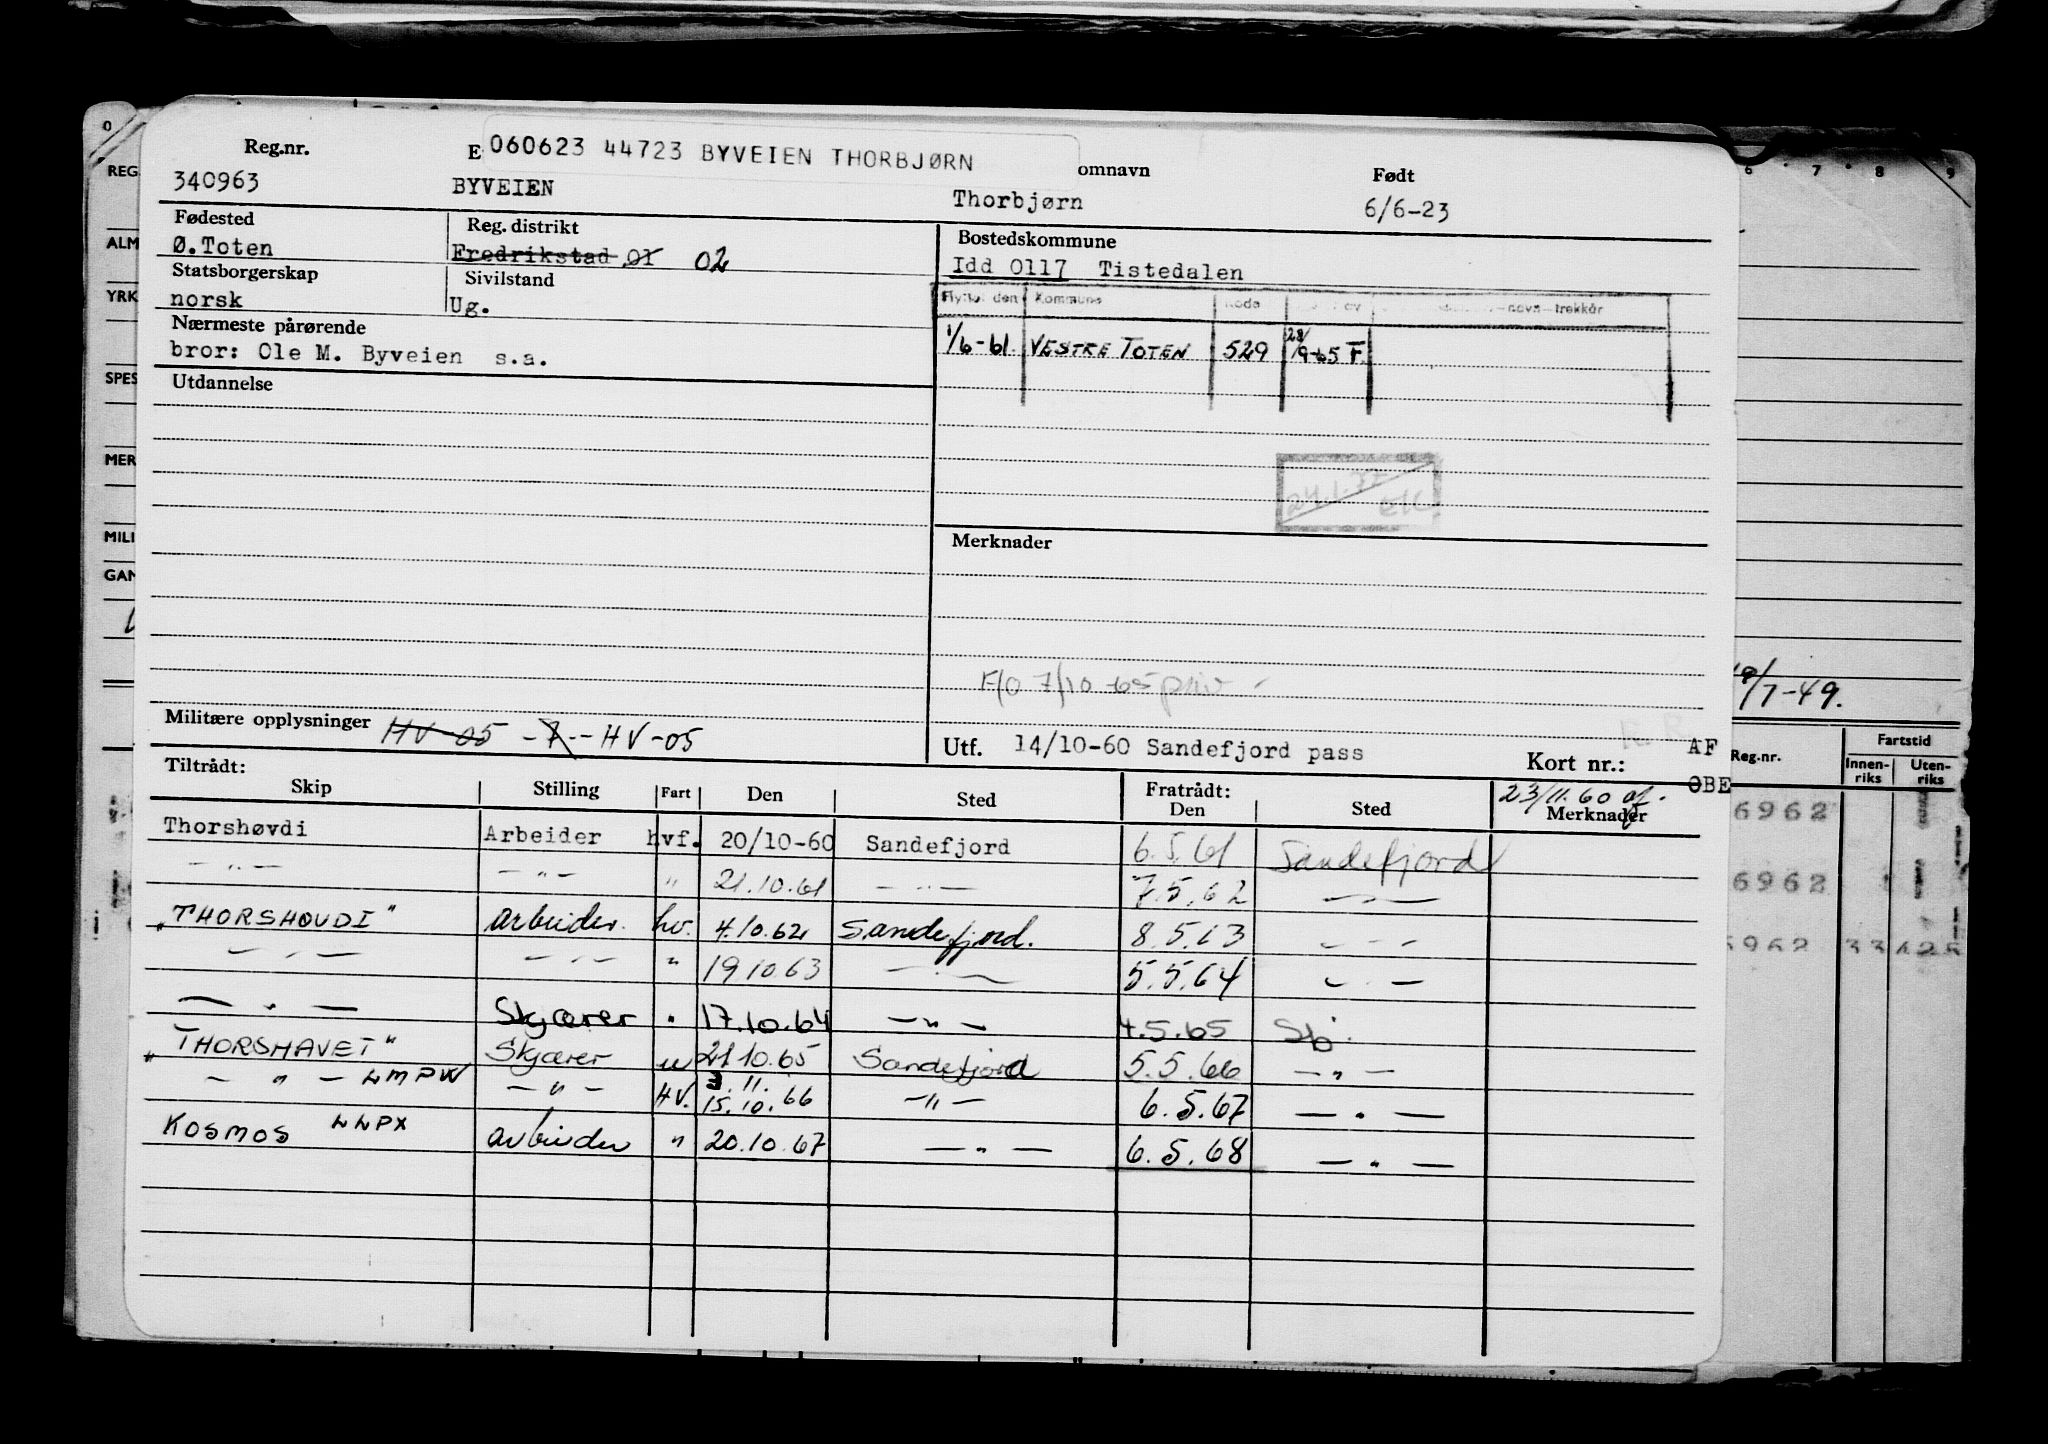 Reg.nr. E 060623 44723 BYVEIEN THORBJØRN omnavn Født
340963 BYVEIEN Thorbjørn 6/6-23
Fødested Reg. distrikt Bostedskommune
Ø.Toten Fredrikstad 01 02 Idd 0117 Tistedalen
Statsborgerskap Sivilstand
norsk Ug.
Flyttet den Kommune Kode navn-trekkår
1/6-61 VESTRE TOTEN 529 28/9-65 F.
Nærmeste pårørende
bror: Ole M. Byveien s.a.
Utdannelse
Merknader
F/O 7/10-65 priv
Militære opplysninger HV-05 -7- HV-05
Utf. 14/10-60 Sandefjord pass Kort nr.: AF
OBE
Tiltrådt: Fratrådt: 23/11.60 af.
Skip Stilling Fart Den Sted Den Sted Merknader
Thorshøvdi Arbeider hvf. 20/10-60 Sandefjord 6.5.61 Sandefjord
-"- -"- " 21.10.61 -"- 7.5.62 -"-
"THORSHOVDI" arbeider hv. 4.10.62 Sandefjord. 8.5.63 -"-
-"- -"- " 19.10.63 -"- 5.5.64 -"-
-"- Skjærer " 17.10.64 -"- 4.5.65 Sfj.
"THORSHAVET" Skjærer u 21.10.65 Sandefjord 5.5.66 -"-
-"- LMPW -"- HV. 3.11. 15.10.66 -"- 6.5.67 -"-
KOSMOS LLPX arbeider " 20.10.67 -"- 6.5.68 -"-
0
REG
ALM
YRK
SPES
MER
MILI
GAN
6 7 8 9
19/7-49.
Reg.nr. Fartstid
Innen-riks Uten-riks
6962
6962
6962 33 425